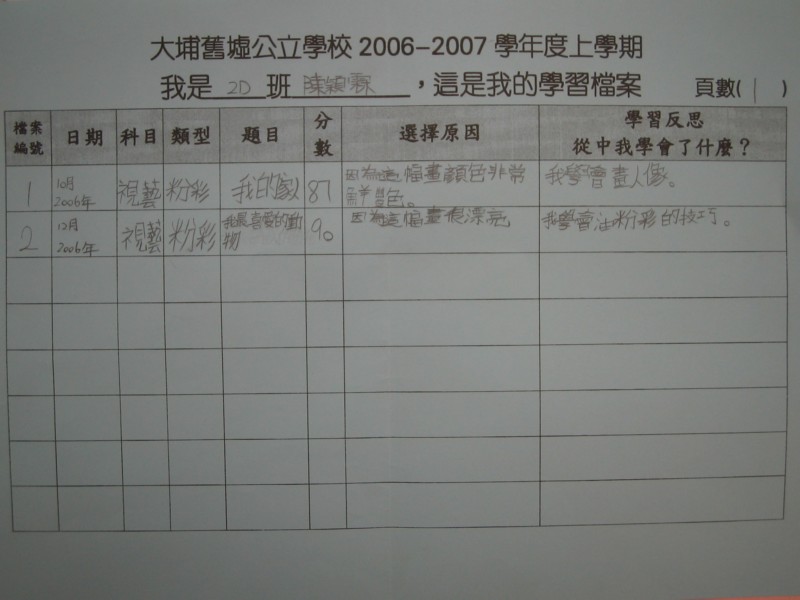 大埔舊墟公立學校 2006-2007 學年度上學期
我是 2D 班 陳穎霖 ，這是我的學習檔案 頁數( 1 )
檔案編號 日期 科目 類型 題目 分數 選擇原因 學習反思 從中我學會了什麼？
1 10月 2006年 視藝 粉彩 我的 87 因為這幅畫顏色非常鮮豔色。 我學會畫人像。
2 12月 2006年 視藝 粉彩 我最喜愛的動物 90 因為這幅畫很漂亮 我學會油粉彩的技巧。